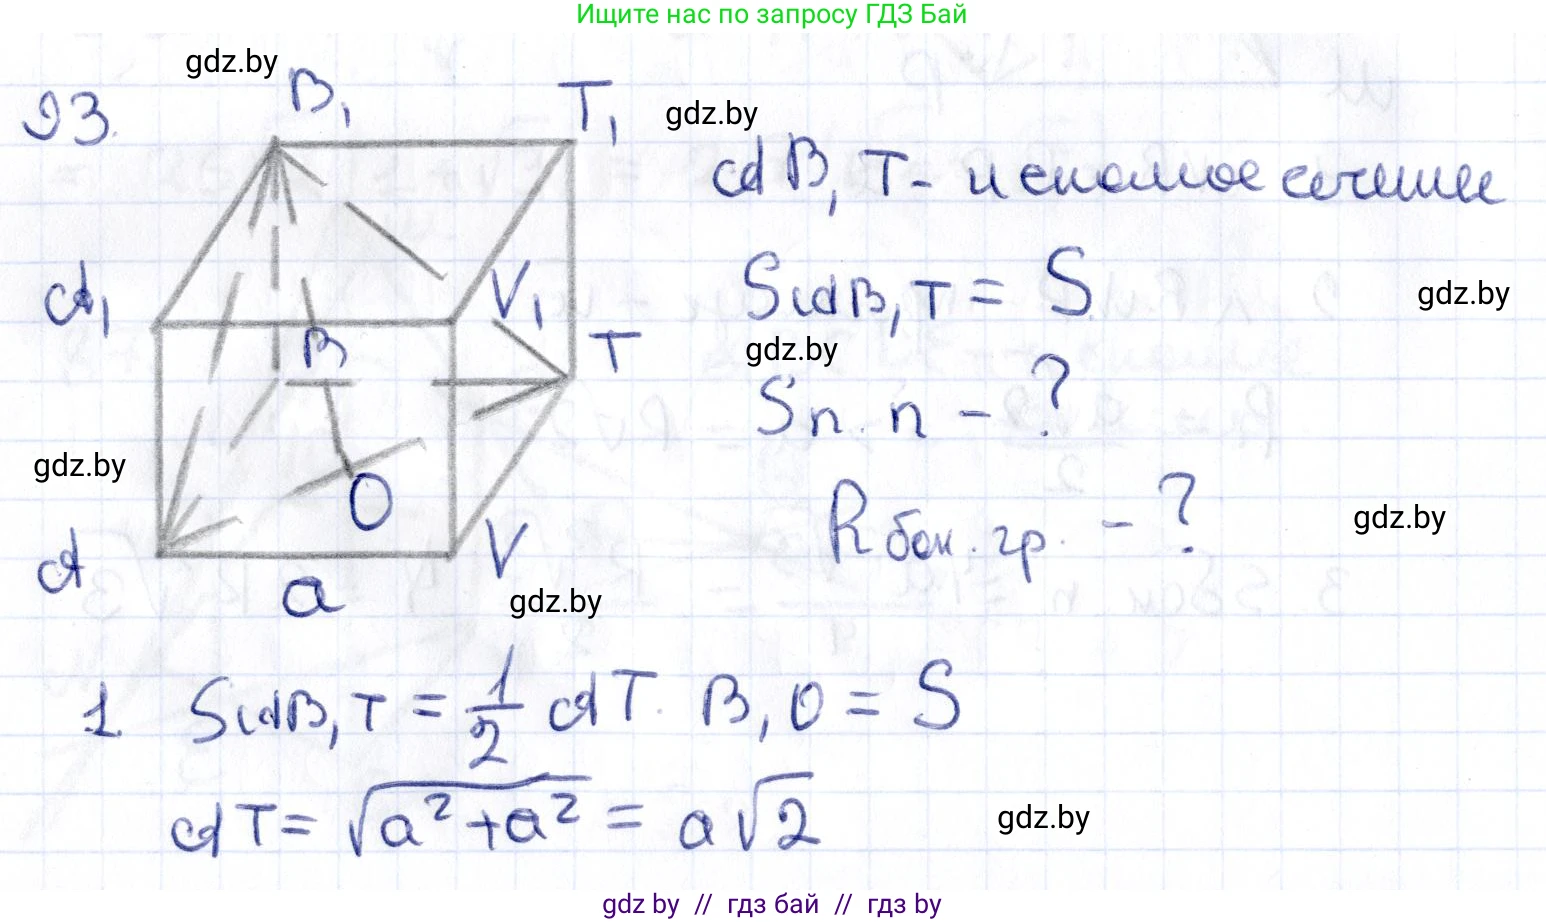 Ищите нас по запросу ГДЗ Бай
gdz.by
93.
B₁
T₁
gdz.by
AB₁T - искомое сечение
A₁
V₁
B
T
S AB₁T = S
gdz.by
gdz.by
Sп.п - ?
gdz.by
O
R бок. гр. - ?
gdz.by
A
V
a
gdz.by
1. S AB₁T = 1/2 AT · B₁O = S
AT = √(a² + a²) = a√2
gdz.by
gdz by // гдз бай // гдз by